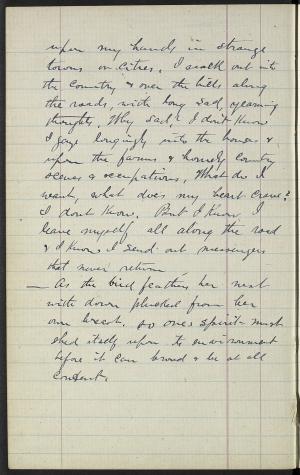 upon my hands in strange
towns or cities, I walk out into
the country & over the hills along
the roads, with long sad, yearning
thoughts. Why sad? I don't know
I gaze longingly into the houses &
upon the farms & homely country
scenes & occupations, What do I
want, what does my heart crave?
I don't know. But I know I
leave myself all along the road
& I know I send out messengers
that never return
— As the bird feathers her nest
with down plucked from her
own breast, so one's spirit must
shed itself upon its environment
before it can brood & be at all
content.